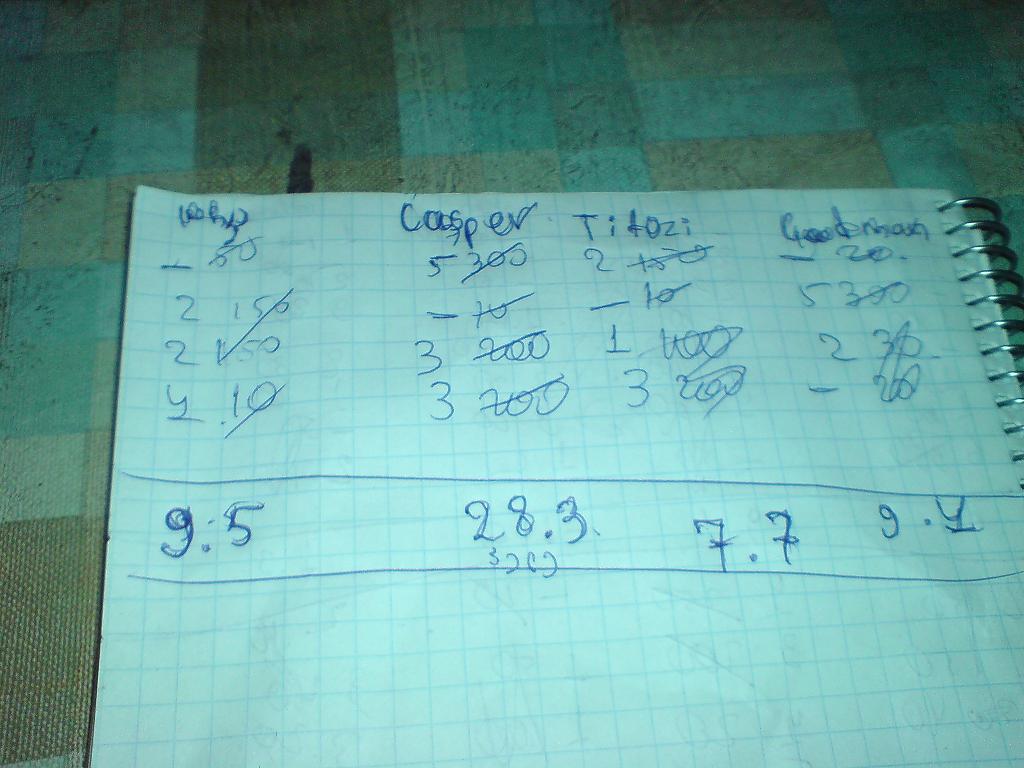 Casper Titozi Goodman
- 50 5 300 2 150 - 20.
2 150 - 10 - 10 5 300
2 150 3 200 1 100 2 30
4 10 3 200 3 200 - 20
9:5 28.3. 7.7 9.4